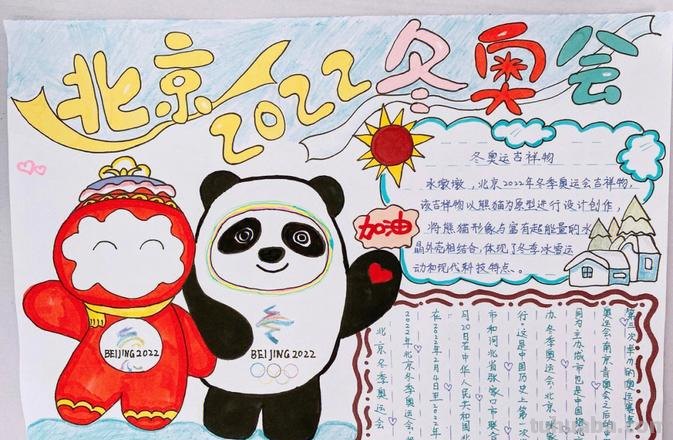 北京2022冬奥会
冬奥运吉祥物
冰墩墩,北京2022年冬季奥运会吉祥物,
该吉祥物以熊猫为原型进行设计创作,
将熊猫形象与富有超能量的冰
晶外壳相结合,体现了冬季冰雪运
动和现代科技特点。
加油
BEIJING 2022
BEIJING 2022
北京冬季奥运会
2022年北京冬季奥
在2022年2月4日至2022
月20日在中华人民共和国
市和河北省张家口市联
行。这是中国历史上第一次
办冬季奥运会
同为主办城市,也是中国
奥运会、南京青奥会之后
第三次举办的奥运赛